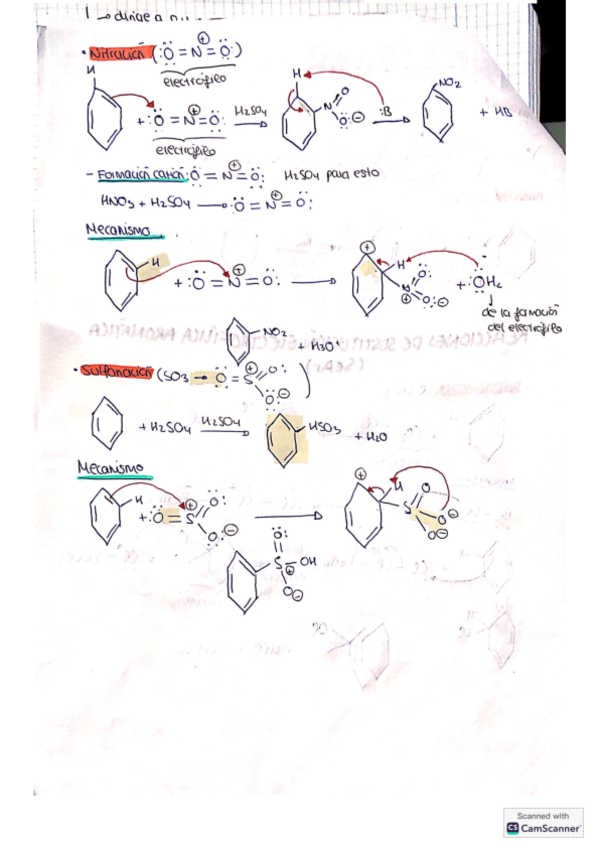 1 → dirige a
• Nitración (:Ö=N⊕=Ö:)
electrófilo
H + :Ö=N⊕=Ö: H2SO4 → H N O O⊖ :B → NO2 + HB
electrófilo
- Formación catión :Ö=N⊕=Ö: H2SO4 para esto
HNO3 + H2SO4 → :Ö=N⊕=Ö:
Mecanismo
H + :Ö=N⊕=Ö: → ⊕ H N⊕ O: O:⊖ + :ÖH2
de la formación
del electrófilo
NO2 + H3O+
REACCIONES DE SUSTITUCIÓN ELECTROFÍLICA AROMÁTICA
(SEAr)
• Sulfonación (SO3 → O=S⊕ O: O:⊖)
+ H2SO4 H2SO4 → HSO3 + H2O
Mecanismo
H + :O=S⊕ O: O:⊖ → ⊕ H S O O⊖ O⊖
O: S⊕ OH O⊖
Scanned with
CS CamScanner